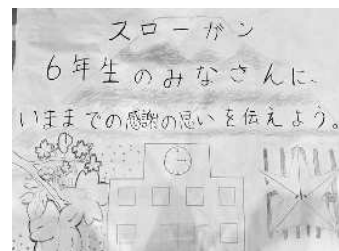 スローガン
6年生のみなさんに、
いままでの感謝の思いを伝えよう。